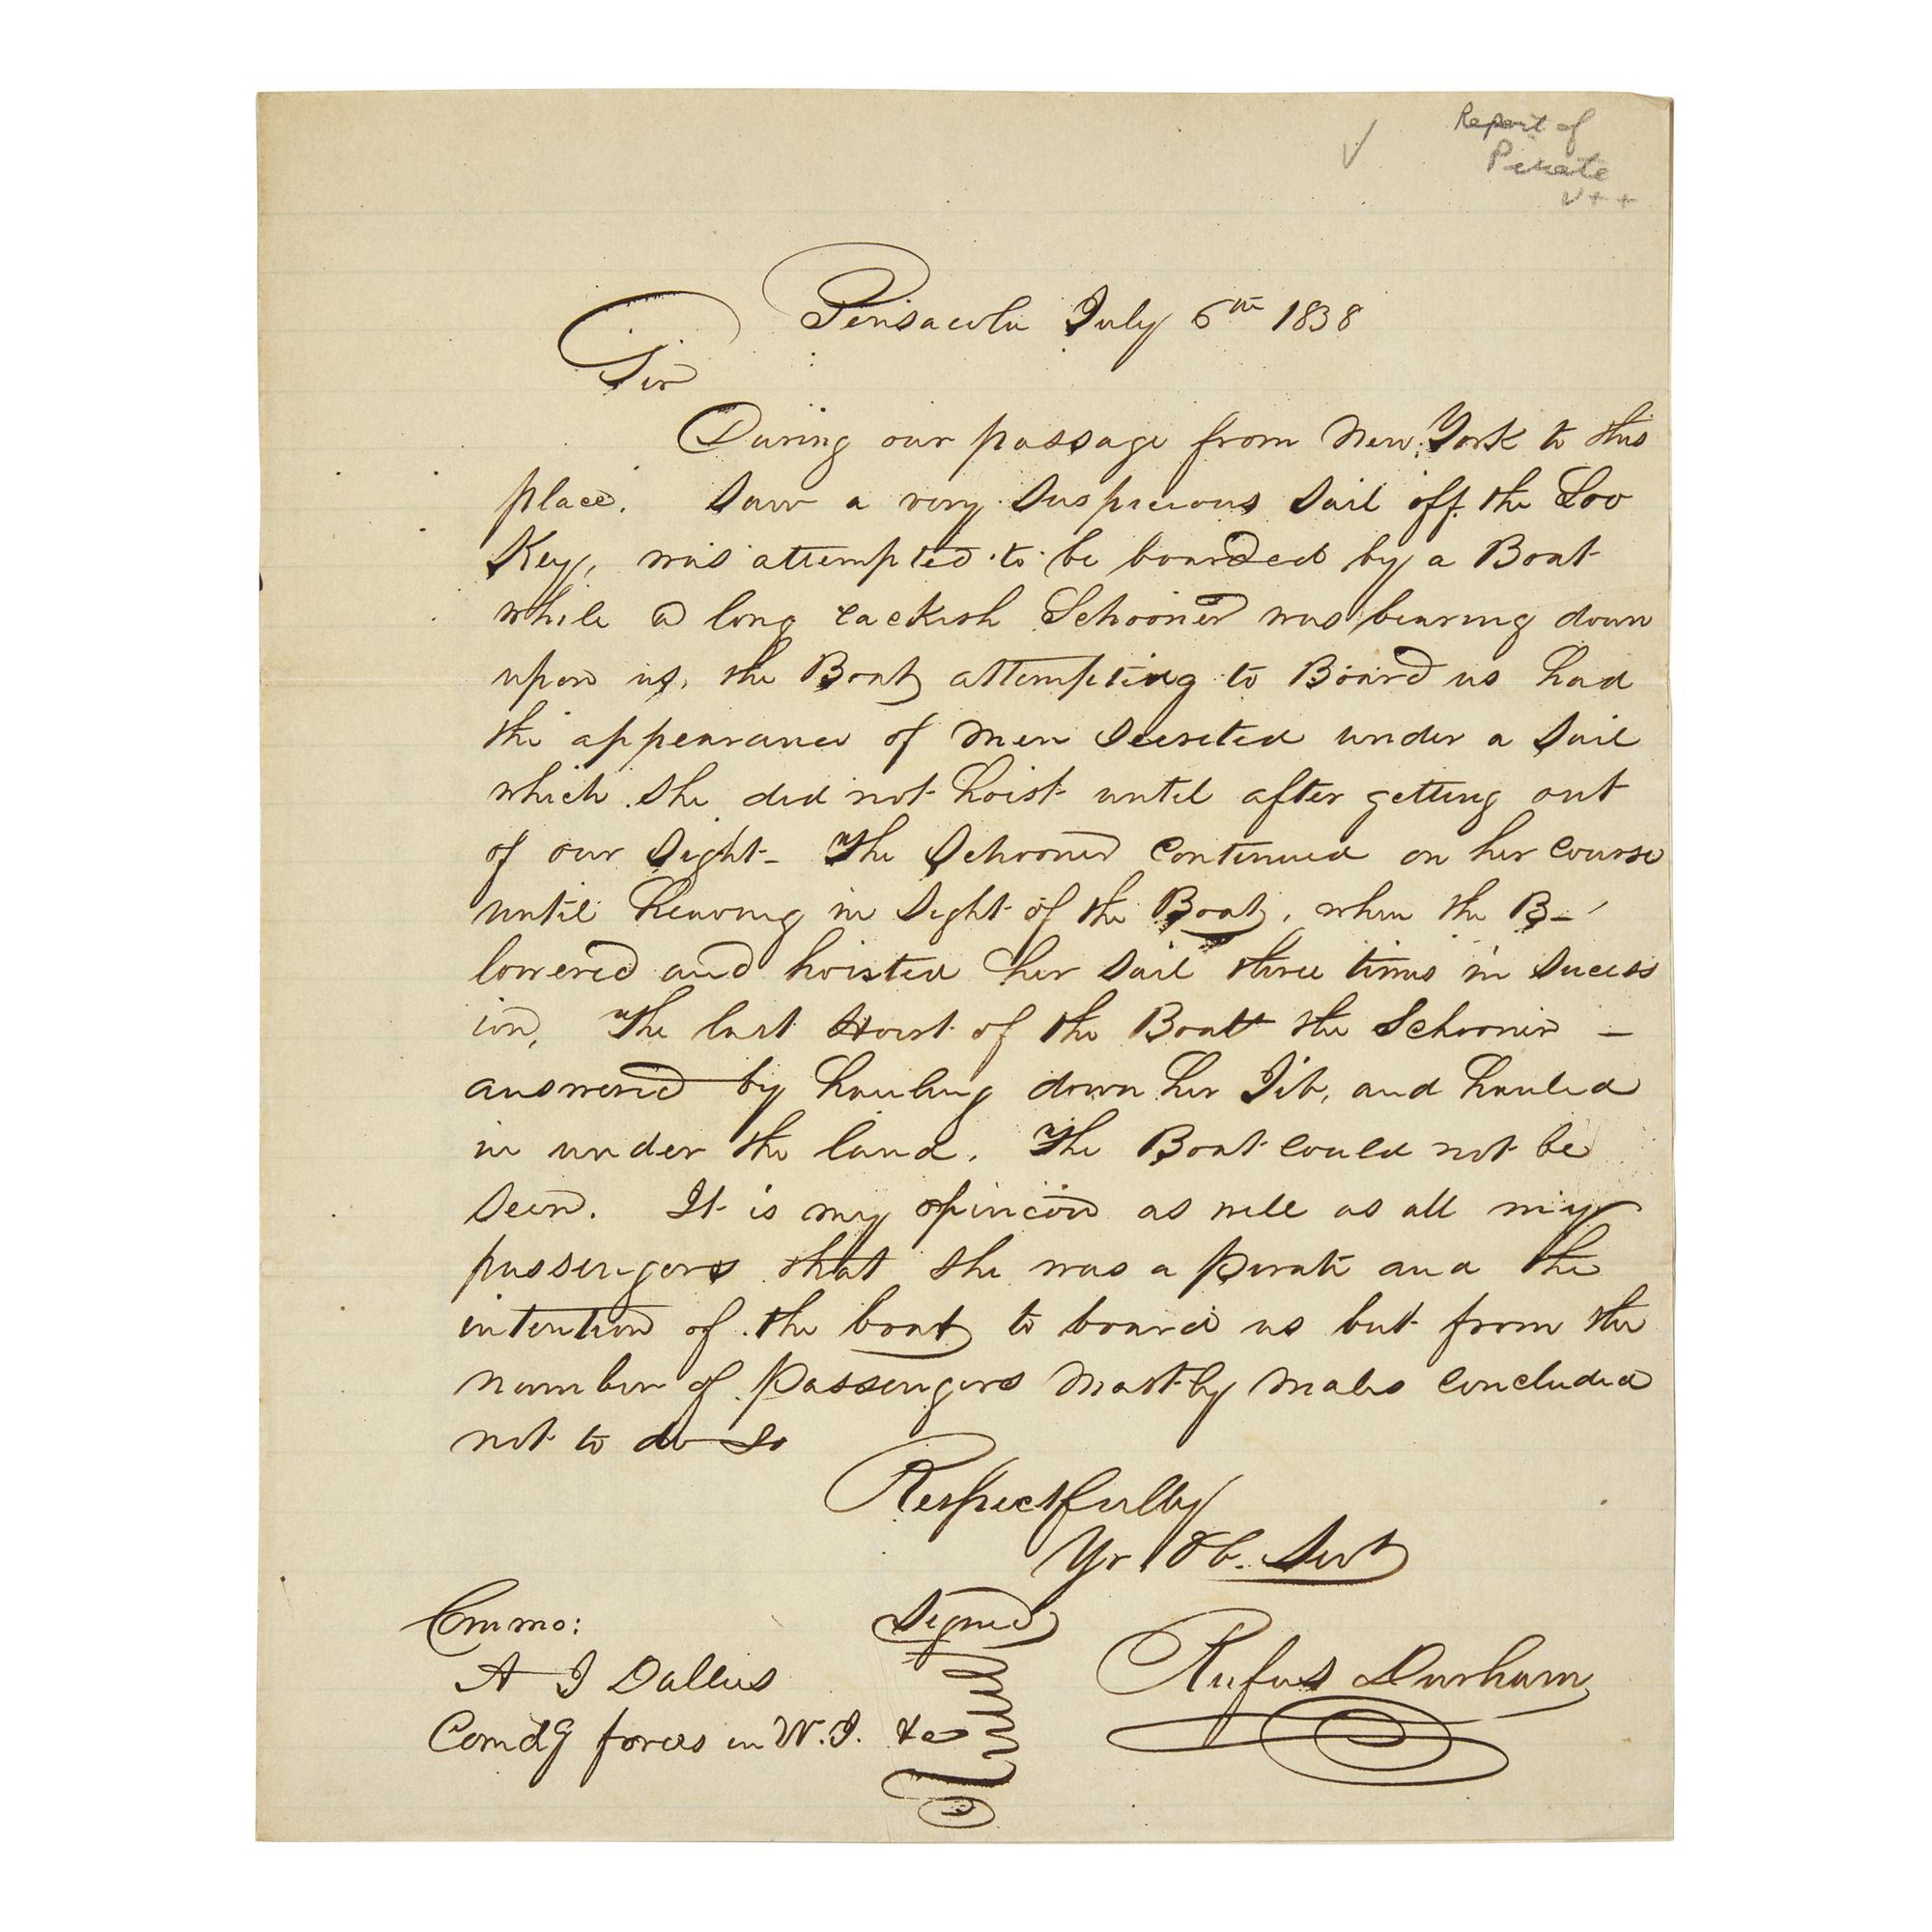 Report of
Pirate
V++
Pensacola July 6th 1838
Sir
During our passage from New York to this
place. Saw a very Suspicious Sail off the Loo
Key, was attempted to be boarded by a Boat
while a long rackish Schooner was bearing down
upon us, the Boat attempting to Board us had
the appearance of men Secreted under a Sail
which She did not hoist until after getting out
of our Sight - The Schooner Continued on her Course
until heaving in Sight of the Boat, when the B-
lowered and hoisted her Sail three times in Sucess
ion, The last Hoist of the Boat the Schooner -
answered by hauling down her Jib, and hauled
in under the land. The Boat could not be
Seen. It is my opinion as well as all my
passengers that She was a pirate and the
intention of the boat to board us but from the
number of passengers Mostly Males Concluded
not to do So
Respectfully
Yr Ob. Svt
Signed
Rufus Durham
Commo:
A J Dallas
Comdg forces in W.I. &c